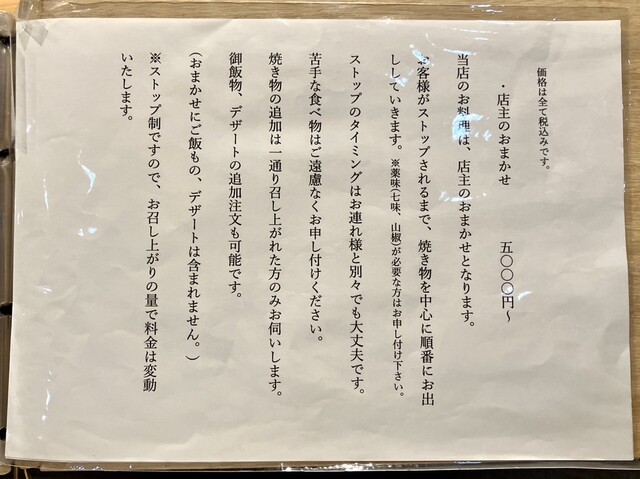 価格は全て税込みです。
・店主のおまかせ　　　五〇〇〇円〜
当店のお料理は、店主のおまかせとなります。
お客様がストップされるまで、焼き物を中心に順番にお出
ししていきます。※薬味(七味、山椒)が必要な方はお申し付け下さい。
ストップのタイミングはお連れ様と別々でも大丈夫です。
苦手な食べ物はご遠慮なくお申し付けください。
焼き物の追加は一通り召し上がれた方のみお伺いします。
御飯物、デザートの追加注文も可能です。
（おまかせにご飯もの、デザートは含まれません。）
※ストップ制ですので、お召し上がりの量で料金は変動
いたします。